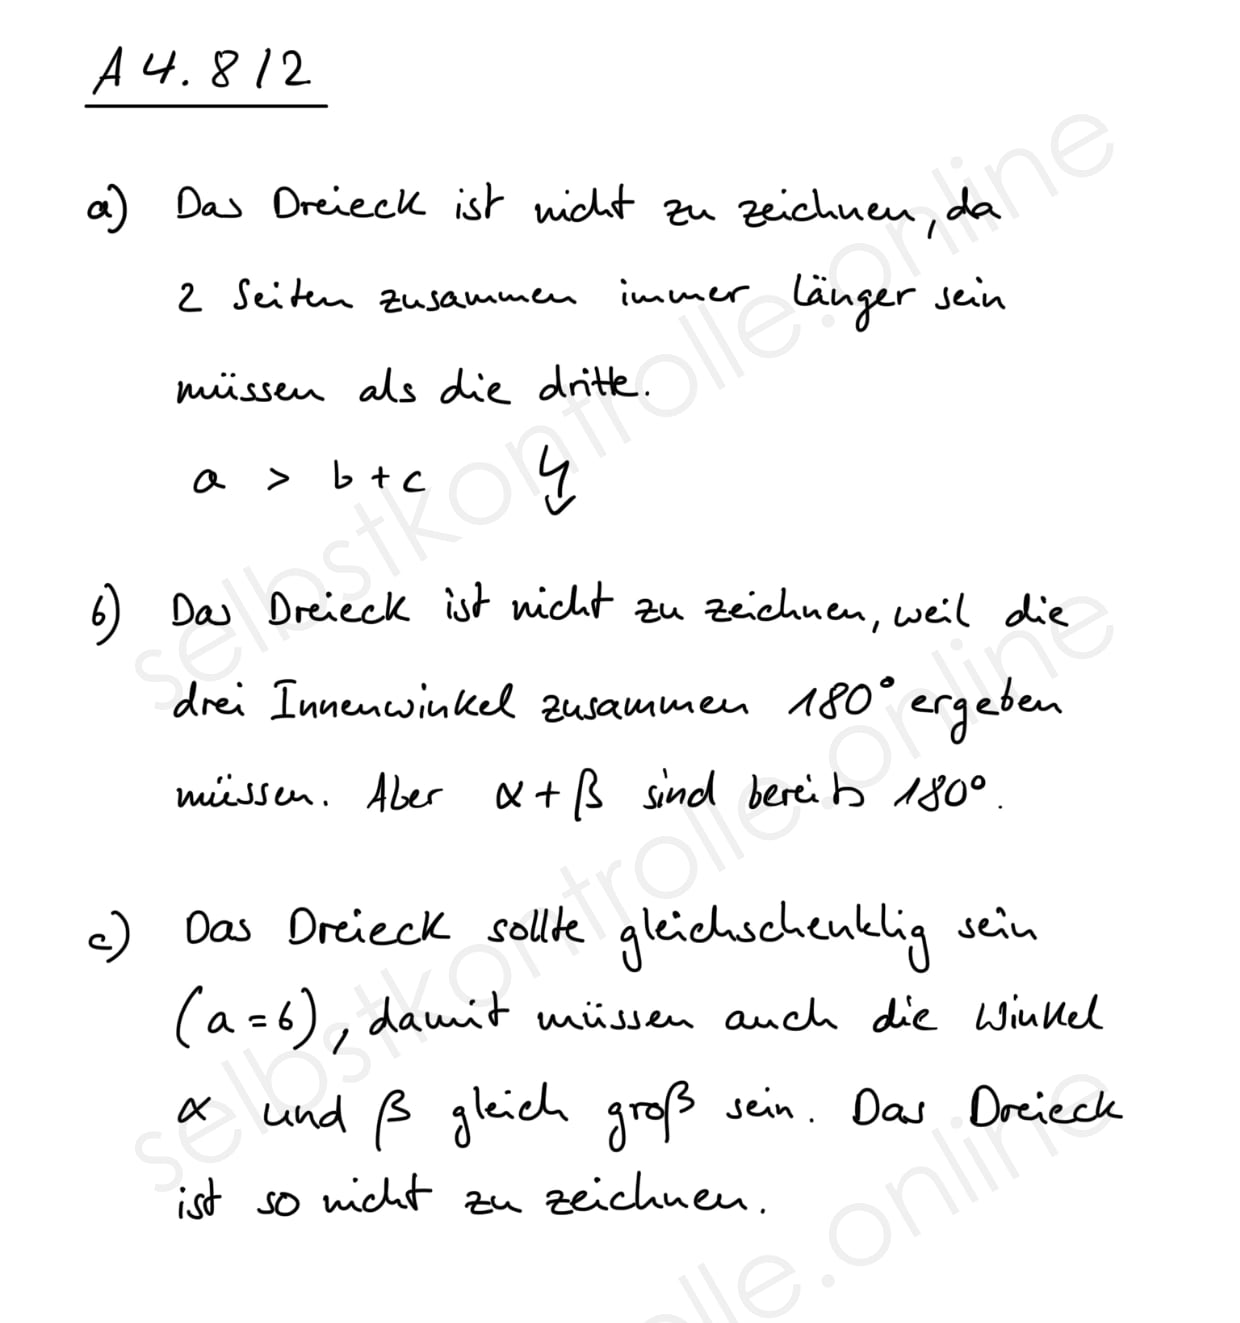 A 4.8/2
a) Das Dreieck ist nicht zu zeichnen, da
2 Seiten zusammen immer länger sein
müssen als die dritte.
a > b + c ↯
b) Das Dreieck ist nicht zu zeichnen, weil die
drei Innenwinkel zusammen 180° ergeben
müssen. Aber α + β sind bereits 180°.
c) Das Dreieck sollte gleichschenklig sein
(a = b), damit müssen auch die Winkel
α und β gleich groß sein. Das Dreieck
ist so nicht zu zeichnen.
selbstkontrolle.online
selbstkontrolle.online
lle.online